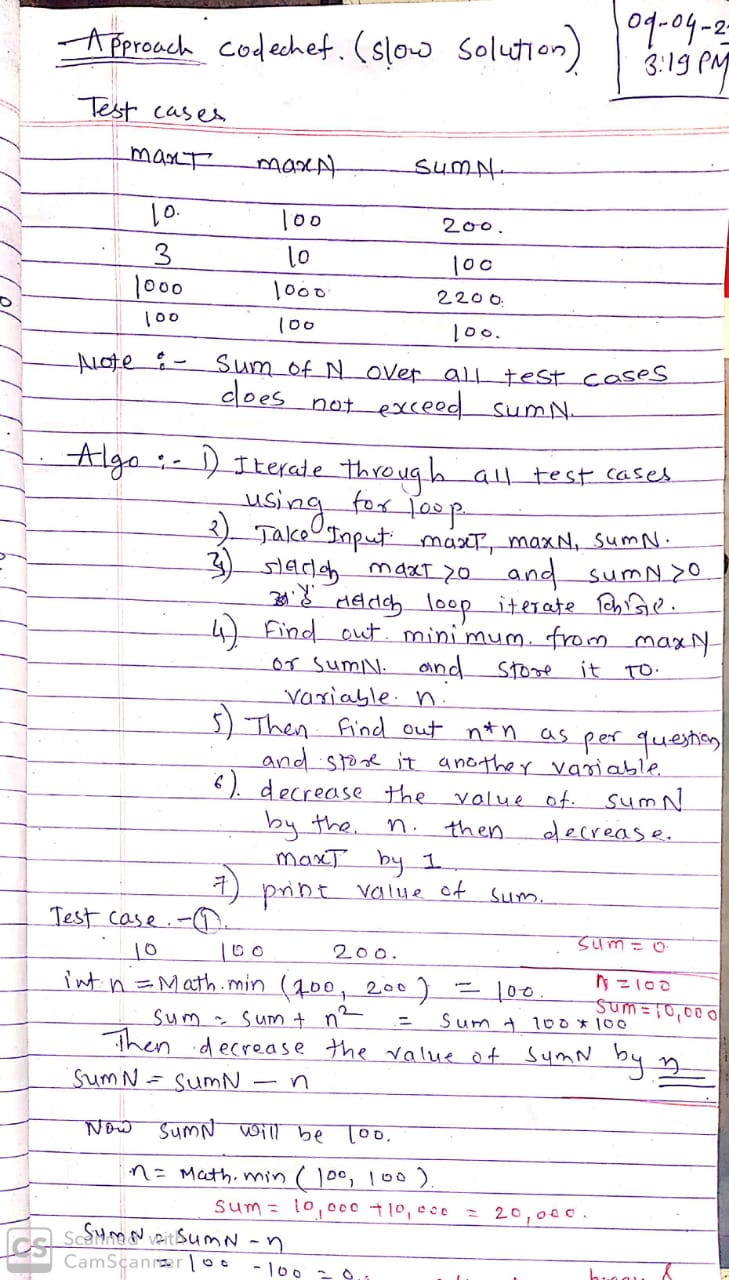 Approach codechef. (slow solution)
09-04-2
3:19 PM
Test cases
maxT maxN sumN.
10. 100 200.
3 10 100
1000 1000 2200.
100 100 100.
Note :- Sum of N over all test cases
does not exceed sumN.
Algo :- 1) Iterate through all test cases
using for loop.
2) Take Input maxT, maxN, sumN.
3) maxT >0 and sumN >0
loop iterate
4) Find out minimum from maxN
or sumN. and store it to.
variable. n.
5) Then find out n*n as per question
and store it another variable.
6). decrease the value of. sumN
by the. n. then decrease.
maxT by 1
7) print value of sum.
Test case. -①.
10 100 200.
sum = 0
int n = Math.min (100, 200) = 100.
n = 100
sum = 10,000
sum = sum + n² = sum + 100 * 100
Then decrease the value of sumN by n
sumN = sumN - n
Now sumN will be 100.
n = Math.min (100, 100)
sum = 10,000 + 10,000 = 20,000.
sumN = sumN - n
= 100 - 100 = 0.
CS Scanned with
CamScanner